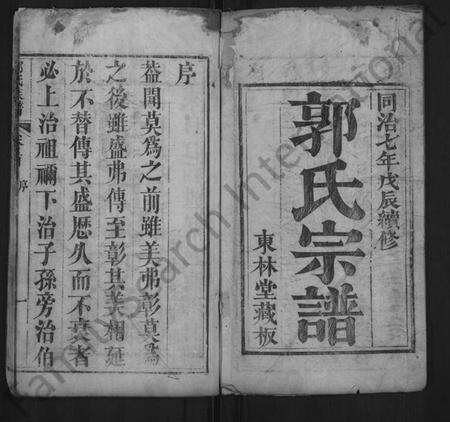 同治七年戊辰續修
郭氏宗譜
東林堂藏板
序
葢聞莫為之前雖美弗彰莫為
之後雖盛弗傳至彰其美相延
於不替傳其盛歷久而不衰者
必上治祖禰下治子孫旁治伯
序
FamilySearch International